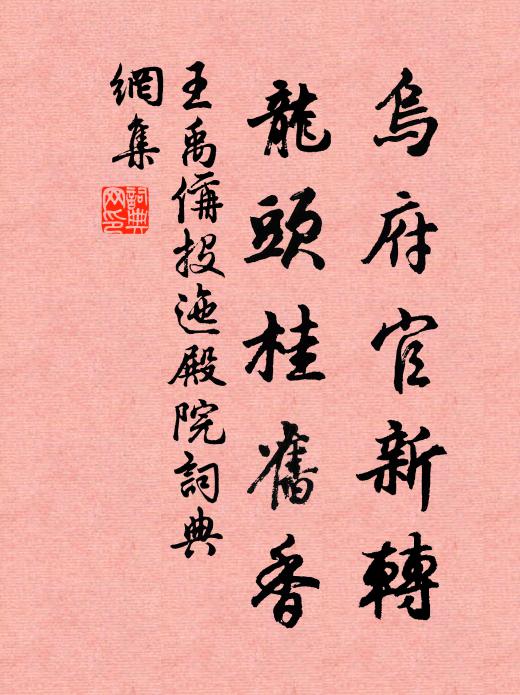 烏府官新轉
龍頭桂舊香
王禹偁投迤殿院詞典
網集
詞典網印